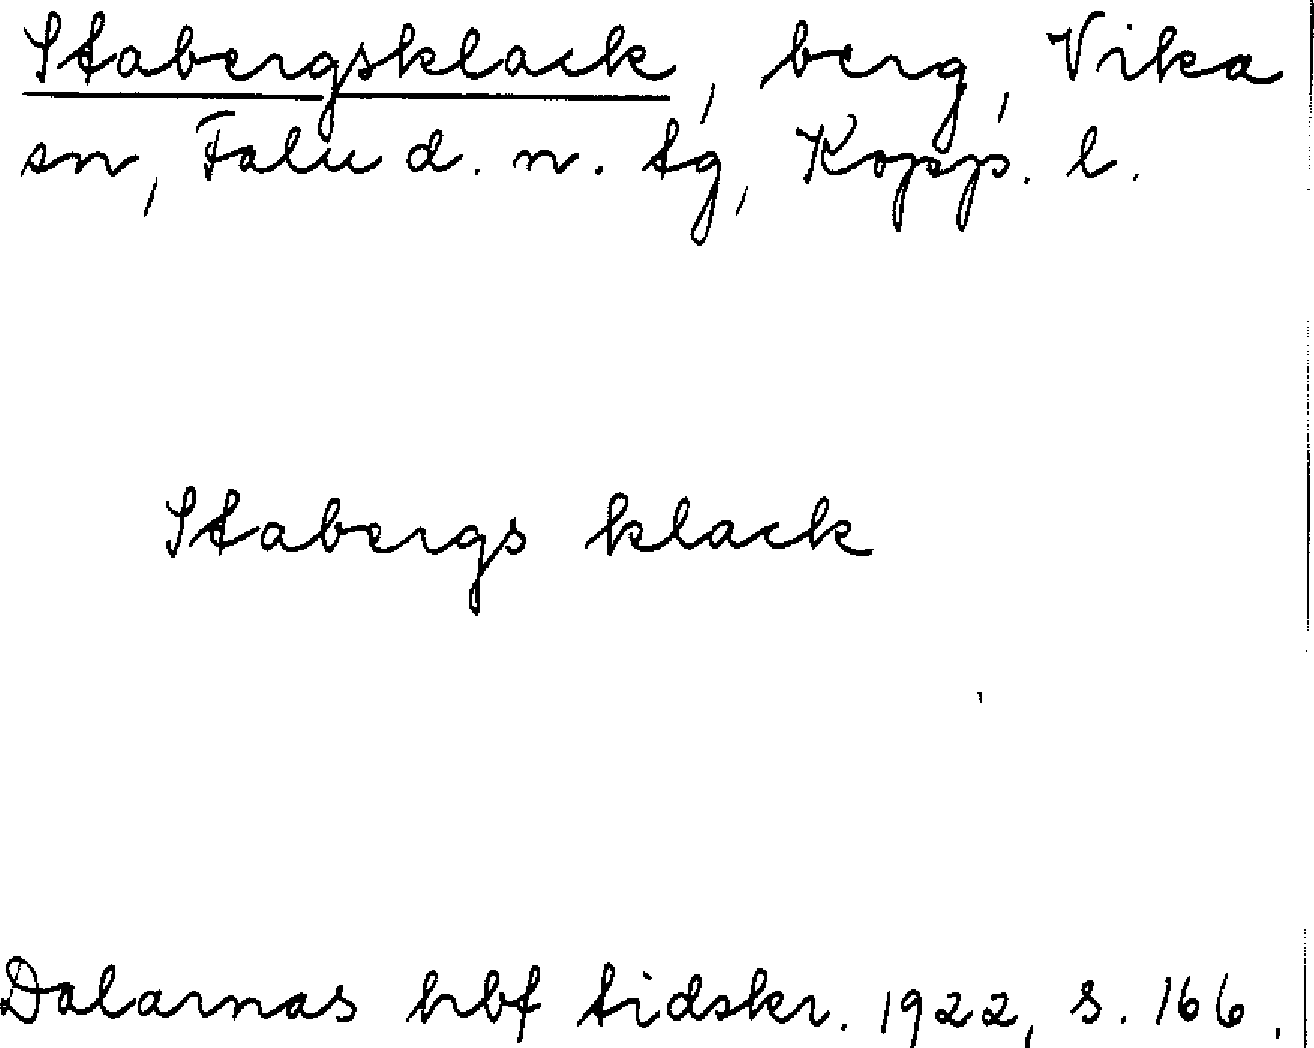 Stabergsklack, berg, Vika
sn, Falu d. n. tg, Kopp. l.
Stabergs klack
Dalarnas hbf tidskr. 1922, s. 166.